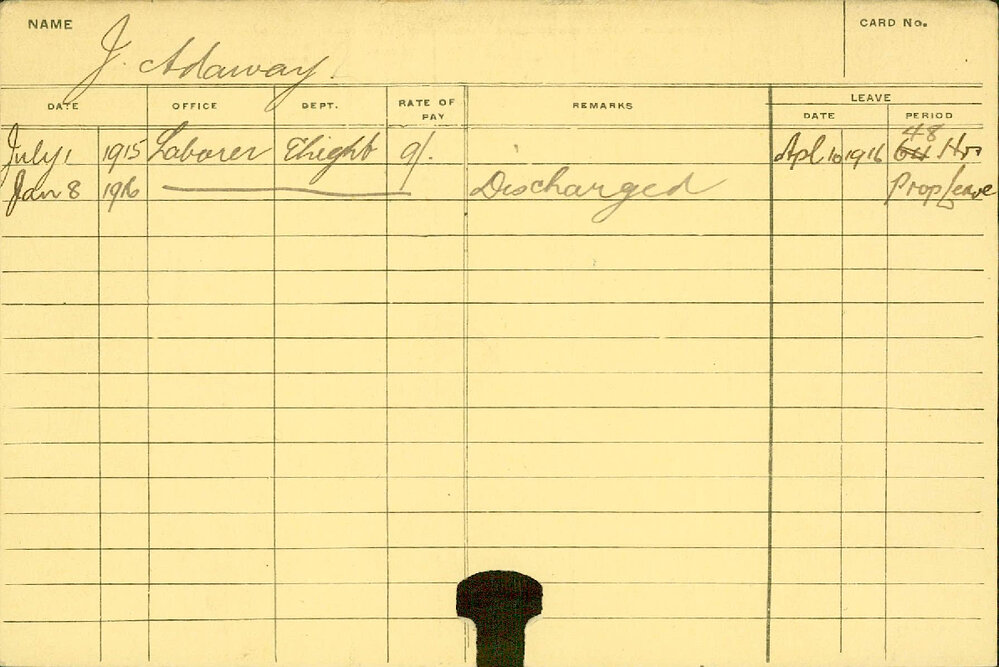 NAME J. Adaway. CARD No.
DATE OFFICE DEPT. RATE OF PAY REMARKS LEAVE
DATE PERIOD
July 1 1915 Laborer 9/. Apl 10 1916 48 64 Hrs
Jan 8 1916 Discharged Prop Leave